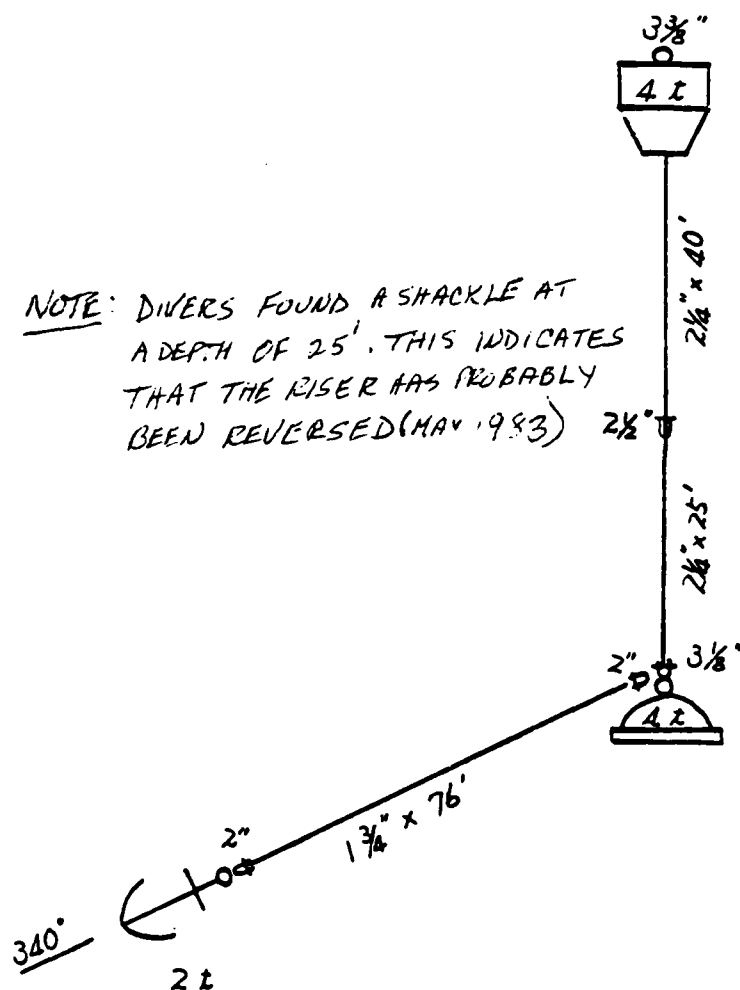 3⅜"
4 t
2¼" x 40'
NOTE: DIVERS FOUND A SHACKLE AT
A DEPTH OF 25'. THIS INDICATES
THAT THE RISER HAS PROBABLY
BEEN REVERSED (MAY 1983)
2½"
2¼" x 25'
2" 3⅛"
4 t
1¾" x 76'
2"
340°
2 t